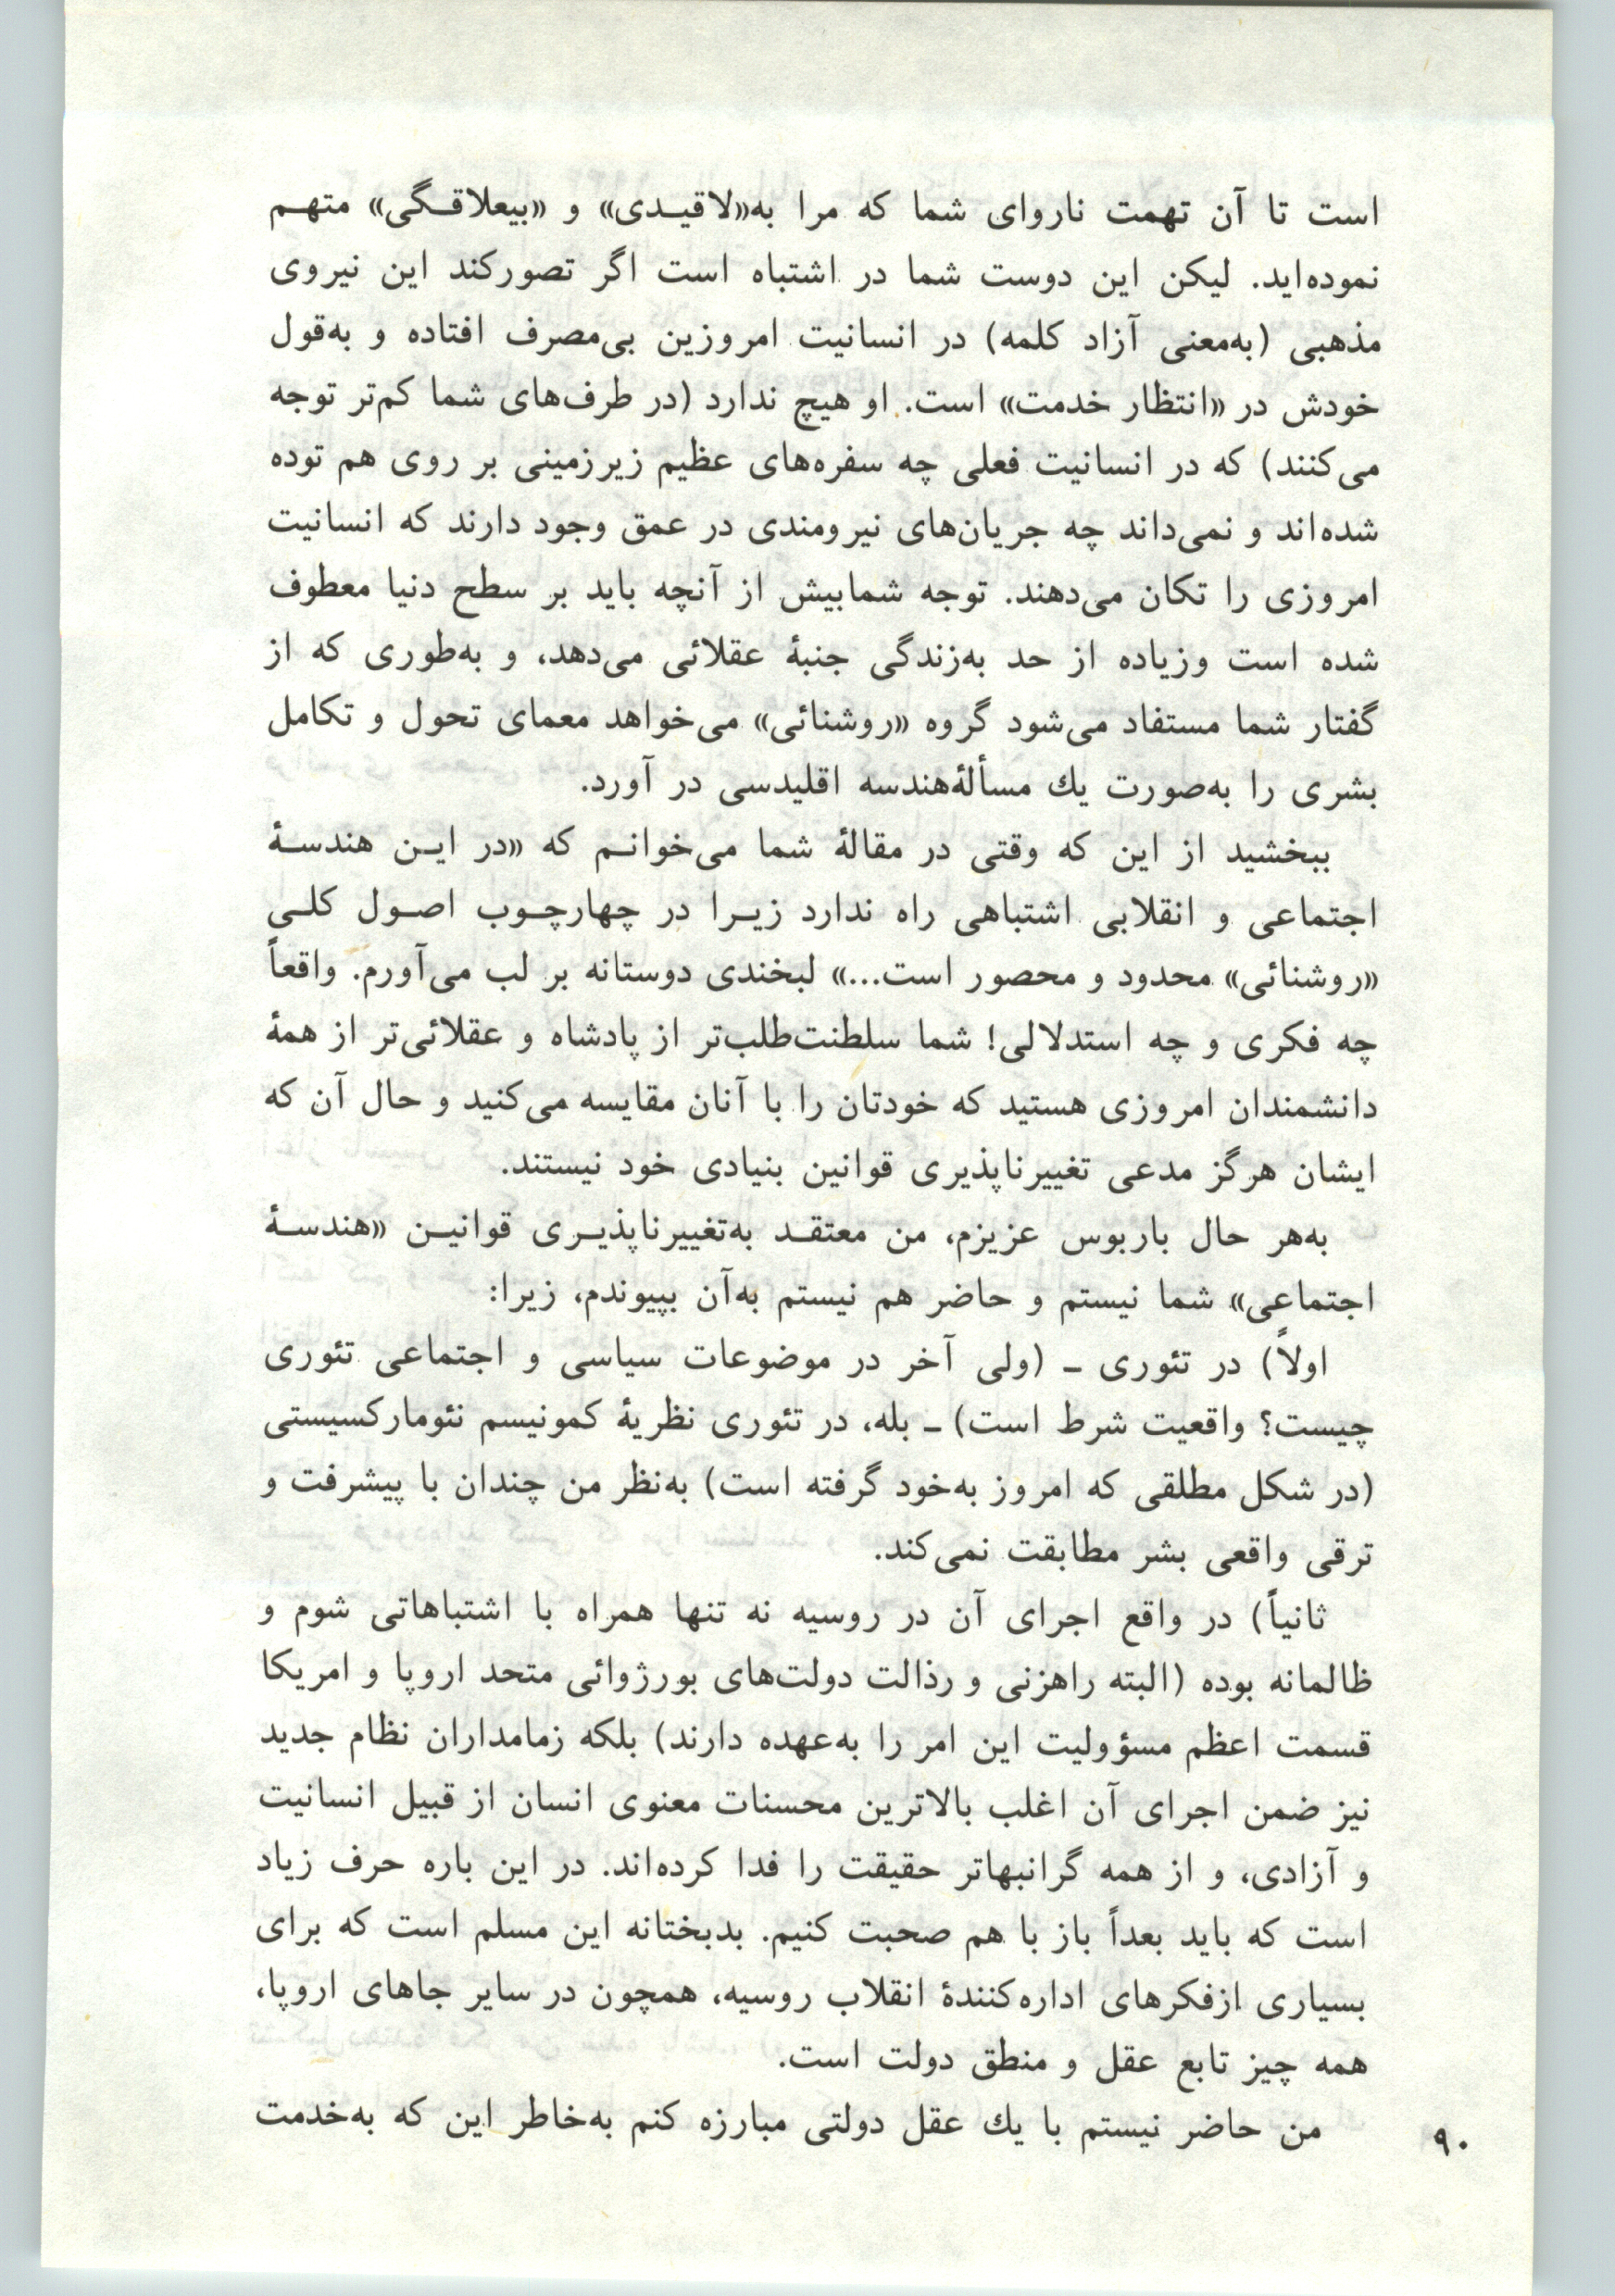 است تا آن تهمت ناروای شما که مرا به«لاقیـدی» و «بیعلاقـگی» متهـم
نموده‌اید. لیکن این دوست شما در اشتباه است اگر تصورکند این نیروی
مذهبی (به‌معنی آزاد کلمه) در انسانیت امروزین بی‌مصرف افتاده و به‌قول
خودش در «انتظار خدمت» است. او هیچ ندارد (در طرف‌های شما کم‌تر توجه
می‌کنند) که در انسانیت فعلی چه سفره‌های عظیم زیرزمینی بر روی هم توده
شده‌اند و نمی‌داند چه جریان‌های نیرومندی در عمق وجود دارند که انسانیت
امروزی را تکان می‌دهند. توجه شمابیش از آنچه باید بر سطح دنیا معطوف
شده است وزیاده از حد به‌زندگی جنبهٔ عقلائی می‌دهد، و به‌طوری که از
گفتار شما مستفاد می‌شود گروه «روشنائی» می‌خواهد معمای تحول و تکامل
بشری را به‌صورت یك مسألهٔ‌هندسه اقلیدسی در آورد.
ببخشید از این که وقتی در مقالهٔ شما می‌خوانـم که «در ایـن هندسـهٔ
اجتماعی و انقلابی اشتباهی راه ندارد زیـرا در چهارچـوب اصـول کلـی
«روشنائی» محدود و محصور است...» لبخندی دوستانه بر لب می‌آورم. واقعاً
چه فکری و چه استدلالی! شما سلطنت‌طلب‌تر از پادشاه و عقلائی‌تر از همهٔ
دانشمندان امروزی هستید که خودتان را با آنان مقایسه می‌کنید و حال آن که
ایشان هرگز مدعی تغییرناپذیری قوانین بنیادی خود نیستند.
به‌هر حال باربوس عزیزم، من معتقـد به‌تغییرناپذیـری قوانیـن «هندسـهٔ
اجتماعی» شما نیستم و حاضر هم نیستم به‌آن بپیوندم، زیرا:
اولاً) در تئوری ـ (ولی آخر در موضوعات سیاسی و اجتماعی تئوری
چیست؟ واقعیت شرط است) ـ بله، در تئوری نظریهٔ کمونیسم نئومارکسیستی
(در شکل مطلقی که امروز به‌خود گرفته است) به‌نظر من چندان با پیشرفت و
ترقی واقعی بشر مطابقت نمی‌کند.
ثانیاً) در واقع اجرای آن در روسیه نه تنها همراه با اشتباهاتی شوم و
ظالمانه بوده (البته راهزنی و رذالت دولت‌های بورژوائی متحد اروپا و امریکا
قسمت اعظم مسؤولیت این امر را به‌عهده دارند) بلکه زمامداران نظام جدید
نیز ضمن اجرای آن اغلب بالاترین محسنات معنوی انسان از قبیل انسانیت
و آزادی، و از همه گرانبهاتر حقیقت را فدا کرده‌اند. در این باره حرف زیاد
است که باید بعداً باز با هم صحبت کنیم. بدبختانه این مسلم است که برای
بسیاری ازفکرهای اداره‌کنندهٔ انقلاب روسیه، همچون در سایر جاهای اروپا،
همه چیز تابع عقل و منطق دولت است.
من حاضر نیستم با یك عقل دولتی مبارزه کنم به‌خاطر این که به‌خدمت
۹۰